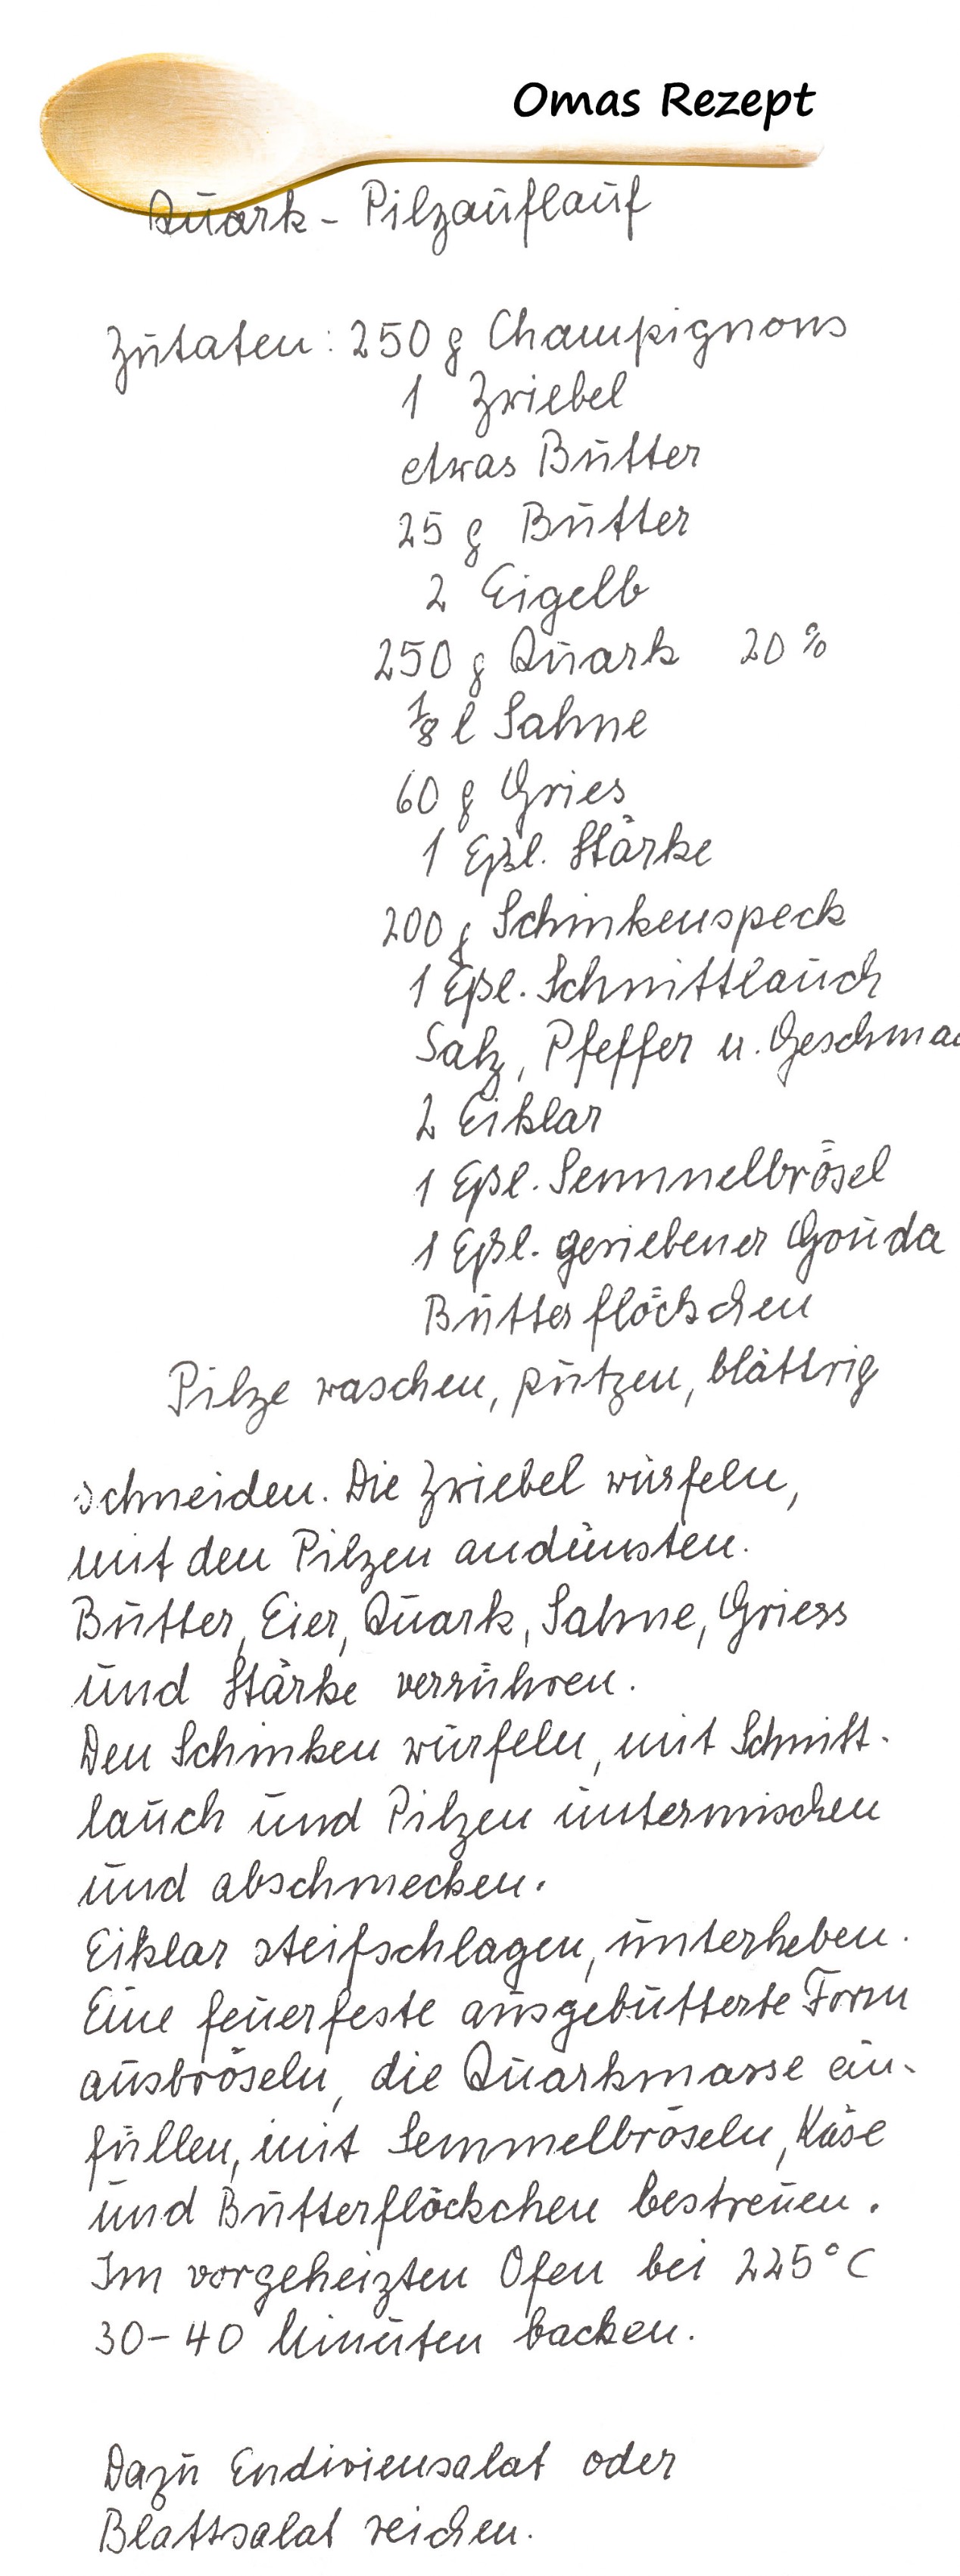 Omas Rezept
Quark - Pilzauflauf
Zutaten: 250 g Champignons
1 Zwiebel
etwas Butter
25 g Butter
2 Eigelb
250 g Quark 20 %
1/8 l Sahne
60 g Gries
1 Eßl. Stärke
200 g Schinkenspeck
1 Eßl. Schnittlauch
Salz, Pfeffer u. Geschmac
2 Eiklar
1 Eßl. Semmelbrösel
1 Eßl. geriebener Gouda
Butterflöckchen
Pilze waschen, putzen, blättrig
schneiden. Die Zwiebel würfeln,
mit den Pilzen andünsten.
Butter, Eier, Quark, Sahne, Griess
und Stärke verrühren.
Den Schinken würfeln, mit Schnitt-
lauch und Pilzen untermischen
und abschmecken.
Eiklar steifschlagen, unterheben.
Eine feuerfeste ausgebutterte Form
ausbröseln, die Quarkmasse ein-
füllen, mit Semmelbröseln, Käse
und Butterflöckchen bestreuen.
Im vorgeheizten Ofen bei 225°C
30-40 Minuten backen.
Dazu Endiviensalat oder
Blattsalat reichen.